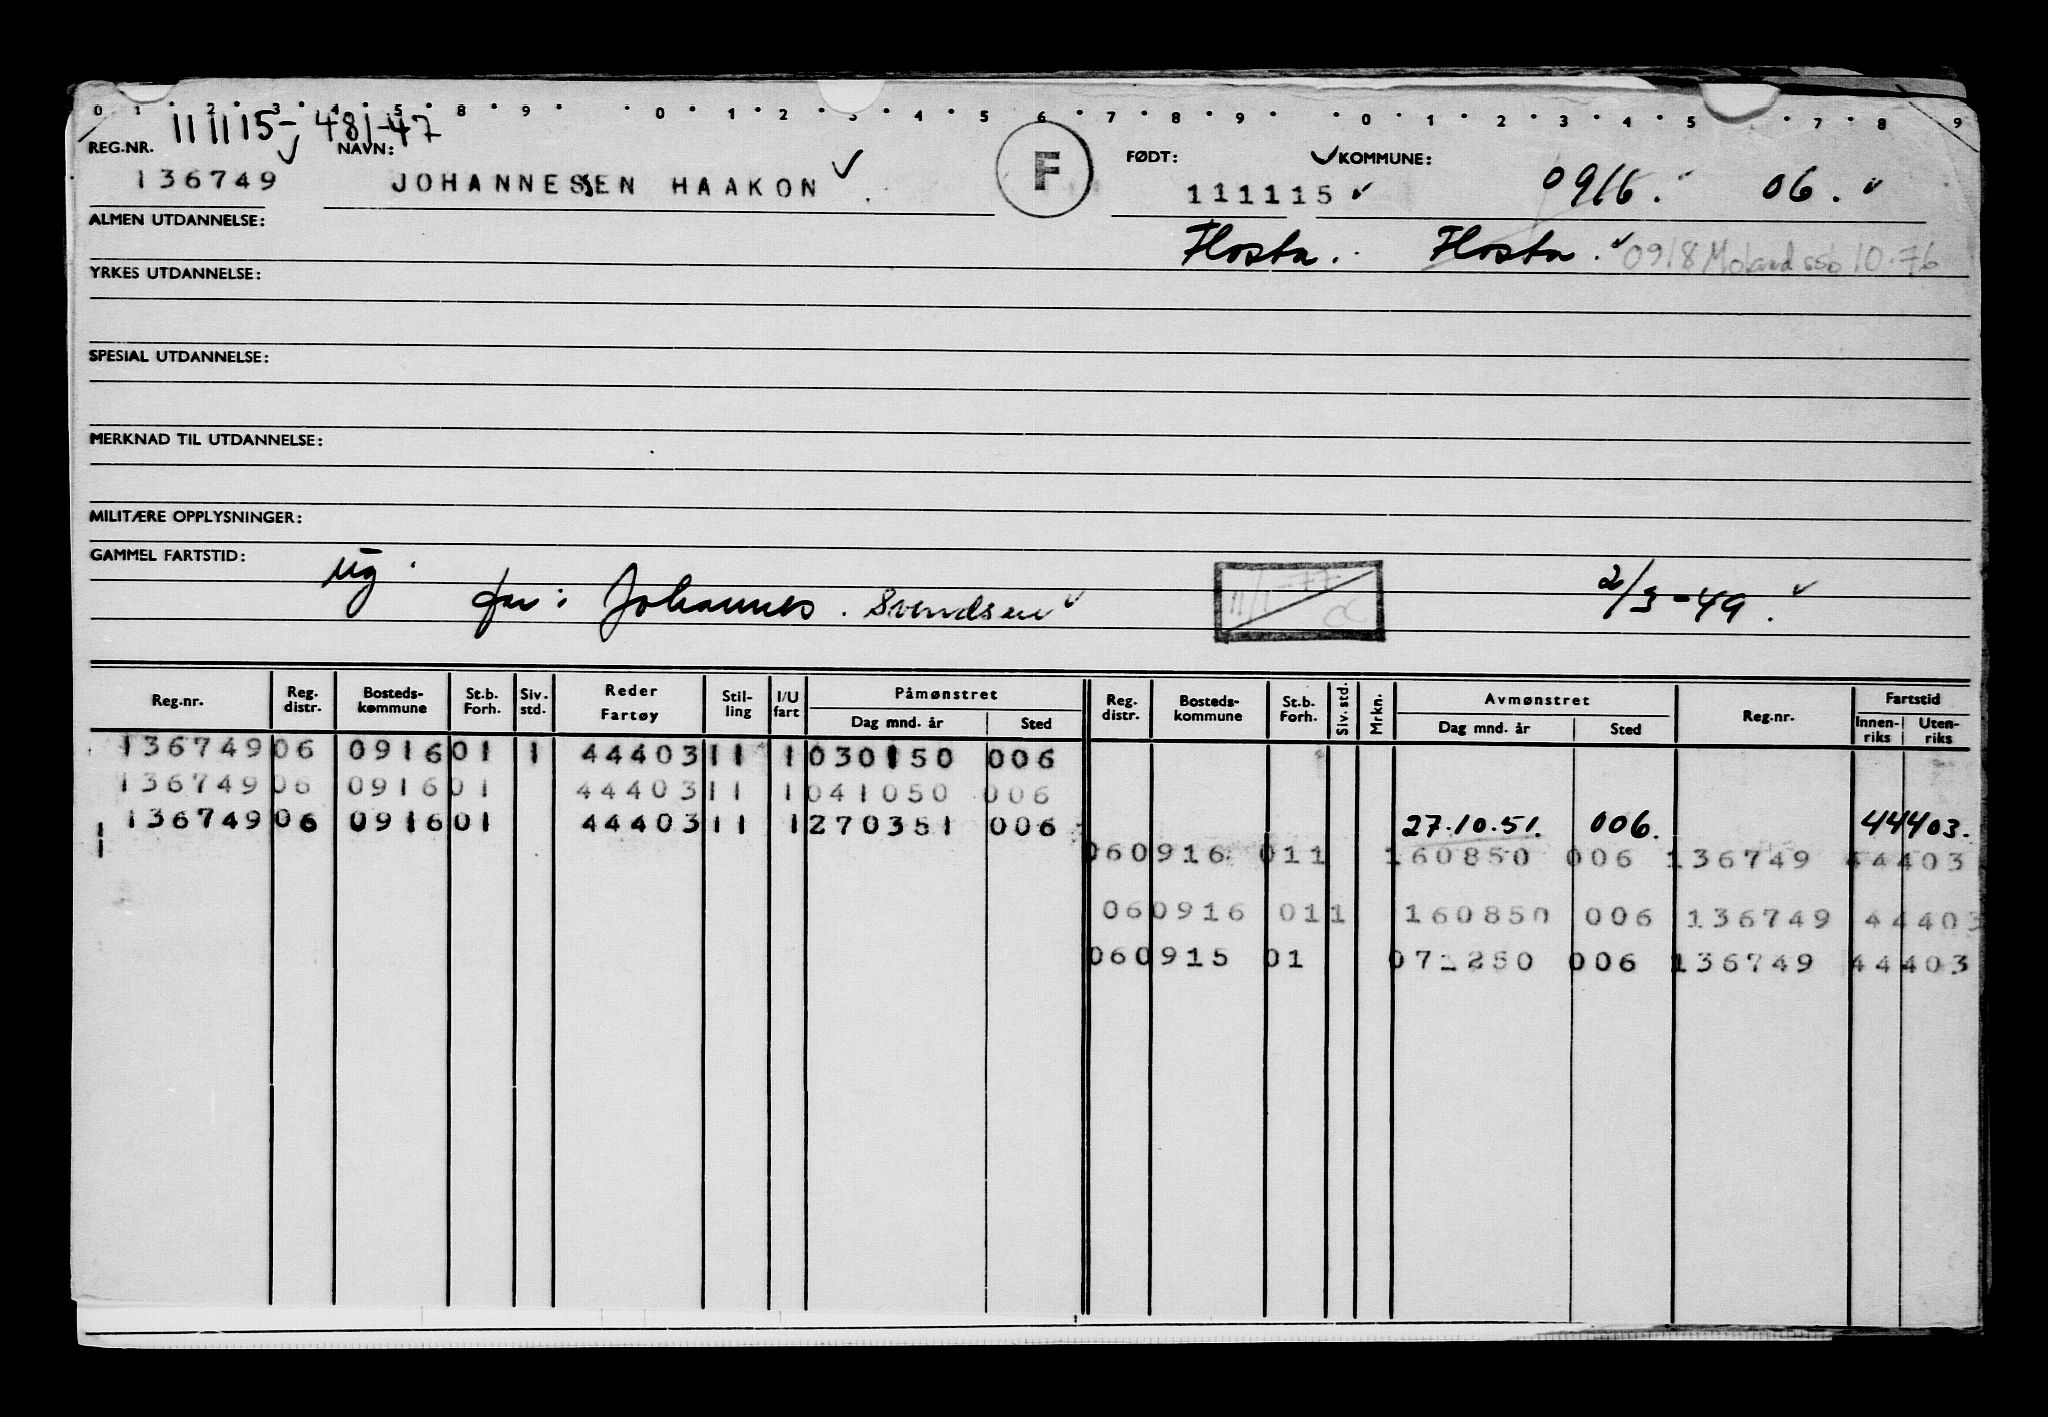 0 1 2 3 4 5 8 9 0 1 2 3 4 5 6 7 8 9 0 1 2 3 4 5 7 8 9
11 11 15 - 481-47
REG.NR. NAVN: FØDT: KOMMUNE:
136749 JOHANNESEN HAAKON F 111115 0916. 06.
ALMEN UTDANNELSE: Flosta. Flosta. 0918 Moland ssb 10.76
YRKES UTDANNELSE:
SPESIAL UTDANNELSE:
MERKNAD TIL UTDANNELSE:
MILITÆRE OPPLYSNINGER:
GAMMEL FARTSTID: ug.
far: Johannes. Svendsen 11/1-77 2/3-49.
Reg.nr. Reg. distr. Bosteds-kommune St.b. Forh. Siv. std. Reder Fartøy Stil-ling I/U fart Påmønstret Dag mnd. år Sted Reg. distr. Bosteds-kommune St.b. Forh. Siv. std. Mrkn. Avmønstret Dag mnd. år Sted Reg.nr. Fartstid Innen-riks Uten-riks
136749 06 0916 01 1 44403 11 1 030150 006
136749 06 0916 01 44403 11 1 041050 006
136749 06 0916 01 44403 11 1 270351 006 27.10.51. 006. 44403.
060916 011 160850 006 136749 44403
060916 011 160850 006 136749 44403
060915 01 071250 006 136749 44403